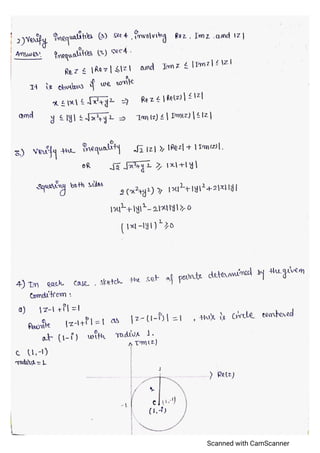 2) Verify inequalities (3) sec 4, involving Re z, Im z and |z|
Answer: inequalities (3) sec 4.
Re z ≤ |Re z| ≤ |z| and Im z ≤ |Im z| ≤ |z|
It is obvious if we write
x ≤ |x| ≤ √x²+y² ⇒ Re z ≤ |Re(z)| ≤ |z|
and y ≤ |y| ≤ √x²+y² ⇒ Im(z) ≤ |Im(z)| ≤ |z|
3) Verify the inequality √2 |z| ≥ |Re z| + |Im z|.
OR √2 √x²+y² ≥ |x|+|y|
Squaring both sides
2(x²+y²) ≥ |x|²+|y|²+2|x||y|
|x|²+|y|²-2|x||y| ≥ 0
(|x|-|y|)² ≥ 0
4) In each case, sketch the set of points determined by the given
Condition:
a) |z-1+i| = 1
Rewrite |z-1+i| = 1 as |z-(1-i)| = 1, this is circle centered
at (1-i) with radius 1.
C (1,-1)
radius = 1
Im(z)
1
Re(z)
-1
C (1,-1)
(1,-i)
Scanned with CamScanner